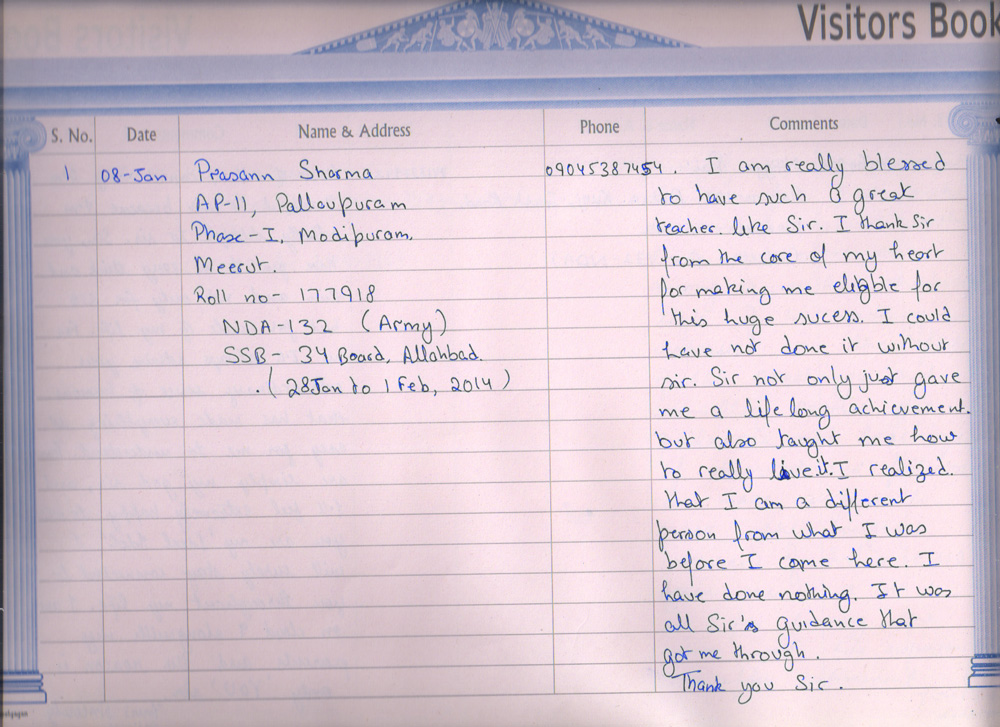 Visitors Book
S. No. Date Name & Address Phone Comments
1 08-Jan Prasann Sharma 09045387454. I am really blessed
AP-11, Pallavpuram to have such a great
Phase-I, Modipuram. teacher. like Sir. I thank Sir
Meerut. from the core of my heart
Roll no- 177918 for making me eligible for
NDA-132 (Army) this huge sucess. I could
SSB- 34 Board, Allahbad. have not done it without
.(28Jan to 1 Feb, 2014) sir. Sir not only just gave
me a life long achievement.
but also taught me how
to really live it. I realized.
that I am a different
person from what I was
before I came here. I
have done nothing. It was
all Sir's guidance that
got me through.
Thank you Sir.